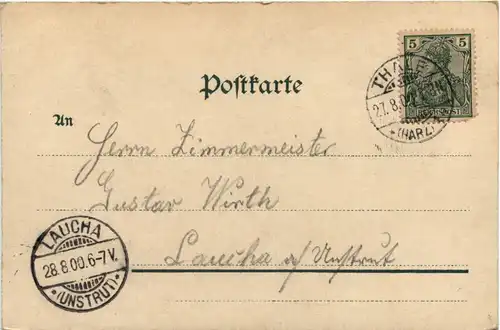 Postkarte
5 5
THALE
27.8.00
*(HARZ)*
An
Herrn Zimmermeister
Gustav Wirth
Laucha a/ Unstrut
LAUCHA
28.8.00.6-7V.
*(UNSTRUT)*